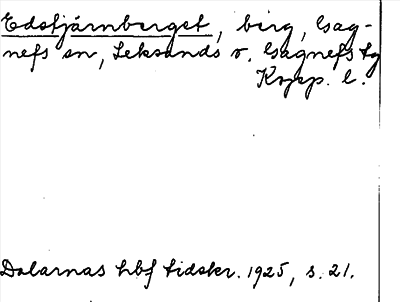 Edstjärnberget, berg, Gag-
nefs sn, Leksands o. Gagnefs tg
Kopp. l.
Dalarnas hbf tidskr. 1925, s. 21.